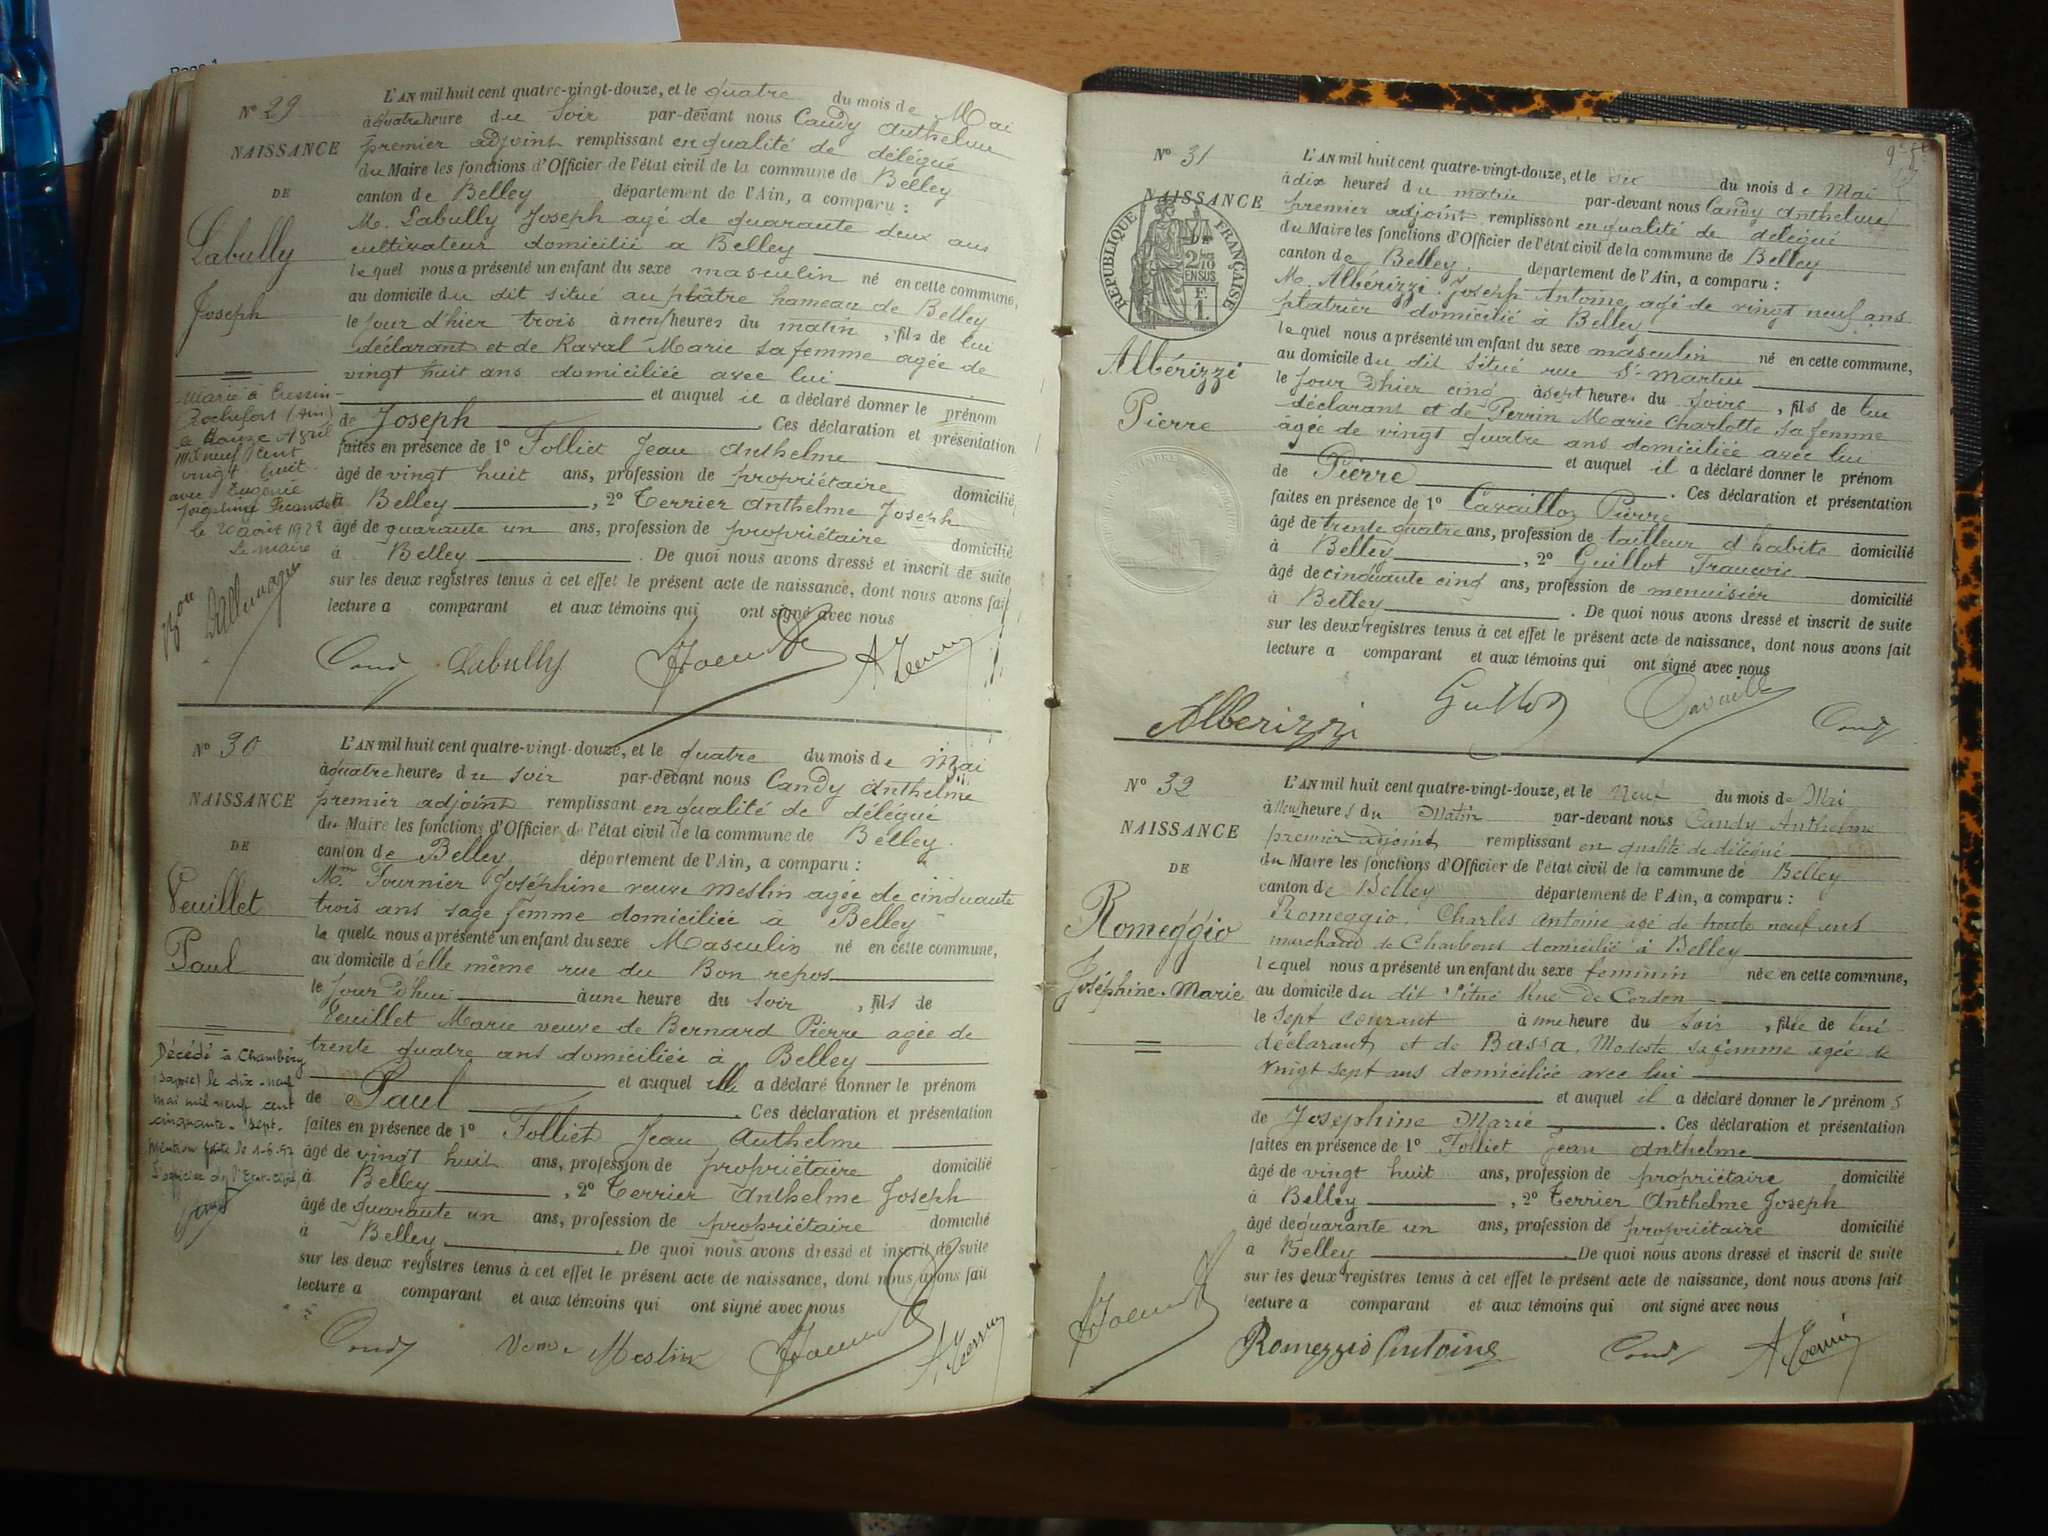 Page 1
N° 29
NAISSANCE
DE
Labully
Joseph
L'AN mil huit cent quatre-vingt-douze, et le quatre du mois de Mai
à quatre heure du Soir par-devant nous Candy Anthelme
premier adjoint remplissant en qualité de délégué
du Maire les fonctions d'Officier de l'état civil de la commune de Belley
canton de Belley département de l'Ain, a comparu :
M. Labully Joseph agé de quarante deux ans
cultivateur domicilié a Belley
lequel nous a présenté un enfant du sexe masculin né en cette commune,
au domicile du dit situé au plâtre hameau de Belley
le jour d'hier trois à neuf heures du matin, fils de lui
déclarant et de Raval Marie sa femme agée de
vingt huit ans domiciliée avec lui
et auquel il a déclaré donner le prénom
de Joseph. Ces déclaration et présentation
faites en présence de 1° Folliet Jean Anthelme
âgé de vingt huit ans, profession de propriétaire domicilié
à Belley, 2° Terrier Anthelme Joseph
âgé de quarante un ans, profession de propriétaire domicilié
à Belley. De quoi nous avons dressé et inscrit de suite
sur les deux registres tenus à cet effet le présent acte de naissance, dont nous avons fait
lecture a comparant et aux témoins qui ont signé avec nous
Marié à Cressin-
Rochefort (Ain)
le Avril
mil neuf cent
vingt huit
avec Eugénie
le 20 août 1928
Le maire
Candy Labully A Terrier
N° 30
NAISSANCE
DE
Veuillet
Paul
L'AN mil huit cent quatre-vingt-douze, et le quatre du mois de Mai
à quatre heures du soir par-devant nous Candy Anthelme
premier adjoint remplissant en qualité de délégué
du Maire les fonctions d'Officier de l'état civil de la commune de Belley.
canton de Belley département de l'Ain, a comparu :
Mme Fournier Joséphine veuve Meslin agée de cinquante
trois ans sage femme domiciliée a Belley
la quelle nous a présenté un enfant du sexe Masculin né en cette commune,
au domicile d'elle même rue du Bon repos
le jour d'hui à une heure du soir, fils de
Veuillet Marie veuve de Bernard Pierre agée de
trente quatre ans domiciliée à Belley
et auquel elle a déclaré donner le prénom
de Paul. Ces déclaration et présentation
faites en présence de 1° Folliet Jean Anthelme
âgé de vingt huit ans, profession de propriétaire domicilié
à Belley, 2° Terrier Anthelme Joseph
âgé de quarante un ans, profession de propriétaire domicilié
à Belley. De quoi nous avons dressé et inscrit de suite
sur les deux registres tenus à cet effet le présent acte de naissance, dont nous avons fait
lecture a comparant et aux témoins qui ont signé avec nous
Décédé à Chambéry
(Savoie) le dix-neuf
mai mil neuf cent
cinquante-sept.
Mention faite le 1-6-57
L'officier de l'Etat-civil,
Candy Meslin A Terrier
N° 31
NAISSANCE
DE
RÉPUBLIQUE FRANÇAISE
2/10
EN SUS
F.
1.
Albérizzi
Pierre
L'AN mil huit cent quatre-vingt-douze, et le six du mois de Mai
à dix heures du matin par-devant nous Candy Anthelme
premier adjoint remplissant en qualité de délégué
du Maire les fonctions d'Officier de l'état civil de la commune de Belley
canton de Belley. département de l'Ain, a comparu :
M. Albérizzi Joseph Antoine agé de vingt neuf ans
platrier domicilié à Belley
lequel nous a présenté un enfant du sexe masculin né en cette commune,
au domicile du dit situé rue St Martin
le jour d'hier cinq à sept heures du soir, fils de lui
déclarant et de Perrin Marie Charlotte sa femme
âgée de vingt quatre ans domiciliée avec lui
et auquel il a déclaré donner le prénom
de Pierre. Ces déclaration et présentation
faites en présence de 1° Cavailloz Pierre
âgé de trente quatre ans, profession de tailleur d'habits domicilié
à Belley, 2° Guillot Francois
âgé de cinquante cinq ans, profession de menuisier domicilié
à Belley. De quoi nous avons dressé et inscrit de suite
sur les deux registres tenus à cet effet le présent acte de naissance, dont nous avons fait
lecture a comparant et aux témoins qui ont signé avec nous
Alberizzi Guillot Candy
N° 32
NAISSANCE
DE
Romeggio
Joséphine-Marie
L'AN mil huit cent quatre-vingt-douze, et le Neuf du mois de Mai
à Neuf heures du Matin par-devant nous Candy Anthelme
premier adjoint remplissant en qualité de délégué
du Maire les fonctions d'Officier de l'état civil de la commune de Belley
canton de Belley département de l'Ain, a comparu :
Romeggio, Charles Antoine agé de trente neuf ans
marchand de Charbons domicilié à Belley
lequel nous a présenté un enfant du sexe feminin née en cette commune,
au domicile du dit Situé Rue de Cordon
le Sept courant à une heure du Soir, fille de lui
déclarant et de Bassa, Modeste sa femme agée de
vingt sept ans domiciliée avec lui
et auquel il a déclaré donner les prénoms
de Joséphine Marie. Ces déclaration et présentation
faites en présence de 1° Folliet Jean Anthelme
âgé de vingt huit ans, profession de propriétaire domicilié
à Belley, 2° Terrier Anthelme Joseph
âgé de quarante un ans, profession de propriétaire domicilié
à Belley. De quoi nous avons dressé et inscrit de suite
sur les deux registres tenus à cet effet le présent acte de naissance, dont nous avons fait
lecture a comparant et aux témoins qui ont signé avec nous
Romeggio Antoine Candy A Terrier